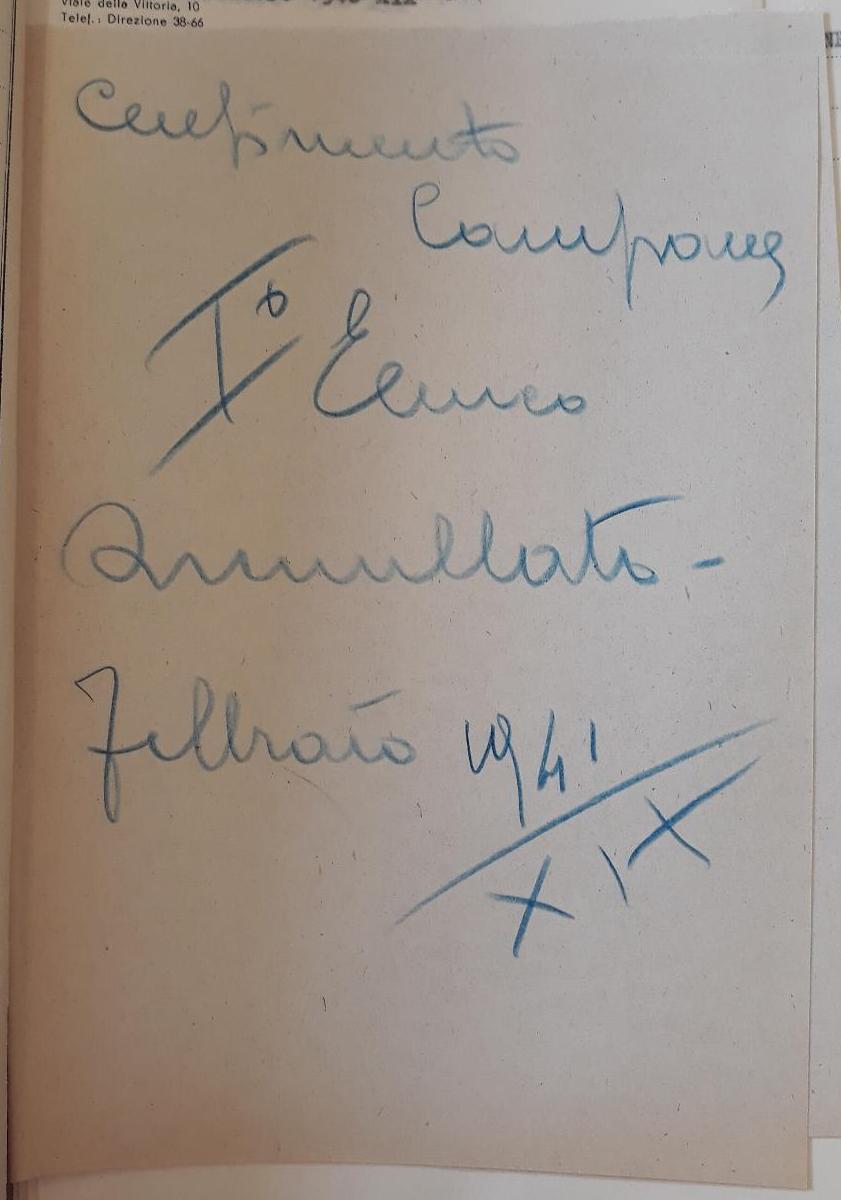 Viale della Vittoria, 10
Telef.: Direzione 38-66
NE
Censimento
Campane
I° Elenco
Annullato -
Febbraio 1941
XIX